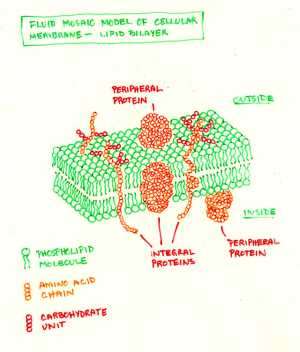 FLUID MOSAIC MODEL OF CELLULAR
MEMBRANE — LIPID BILAYER
PERIPHERAL
PROTEIN
OUTSIDE
INSIDE
INTEGRAL
PROTEINS
PERIPHERAL
PROTEIN
PHOSPHOLIPID
MOLECULE
AMINO ACID
CHAIN
CARBOHYDRATE
UNIT